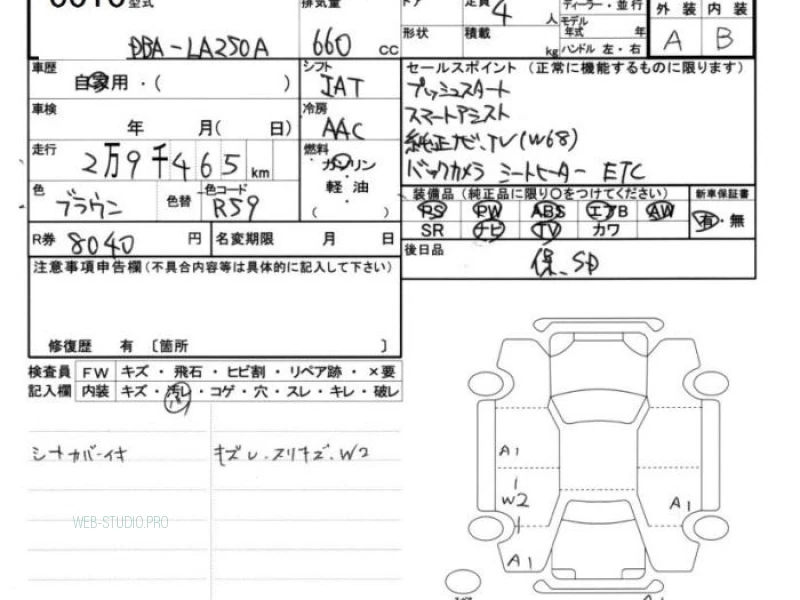 型式 排気量 ドア 定員 4 人 ディーラー・並行 外装 内装
DBA-LA250A 660 cc 形状 積載 kg モデル年式 年 ハンドル 左・右 A B
車歴 自家用・( ) シフト IAT セールスポイント (正常に機能するものに限ります)
プッシュスタート
車検 年 月( 日) 冷房 AAC スマートアシスト
純正ナビ、TV(W68)
走行 2万9千465km 燃料 ガソリン・軽油 ( ) バックカメラ シートヒーター ETC
色 ブラウン 色替 色コード R59 装備品 (純正品に限り○をつけてください) 新車保証書
PS PW ABS エアB AW 有・無
R券 8040 円 名変期限 月 日 SR ナビ TV カワ
後日品 保、SD
注意事項申告欄(不具合内容等は具体的に記入して下さい)
修復歴 有 〔箇所 〕
検査員 FW キズ・飛石・ヒビ割・リペア跡・×要
記入欄 内装 キズ・汚レ・コゲ・穴・スレ・キレ・破レ
キズレ、スリキズ、W2
A1
W2 A1
A1
WEB-STUDIO.PRO